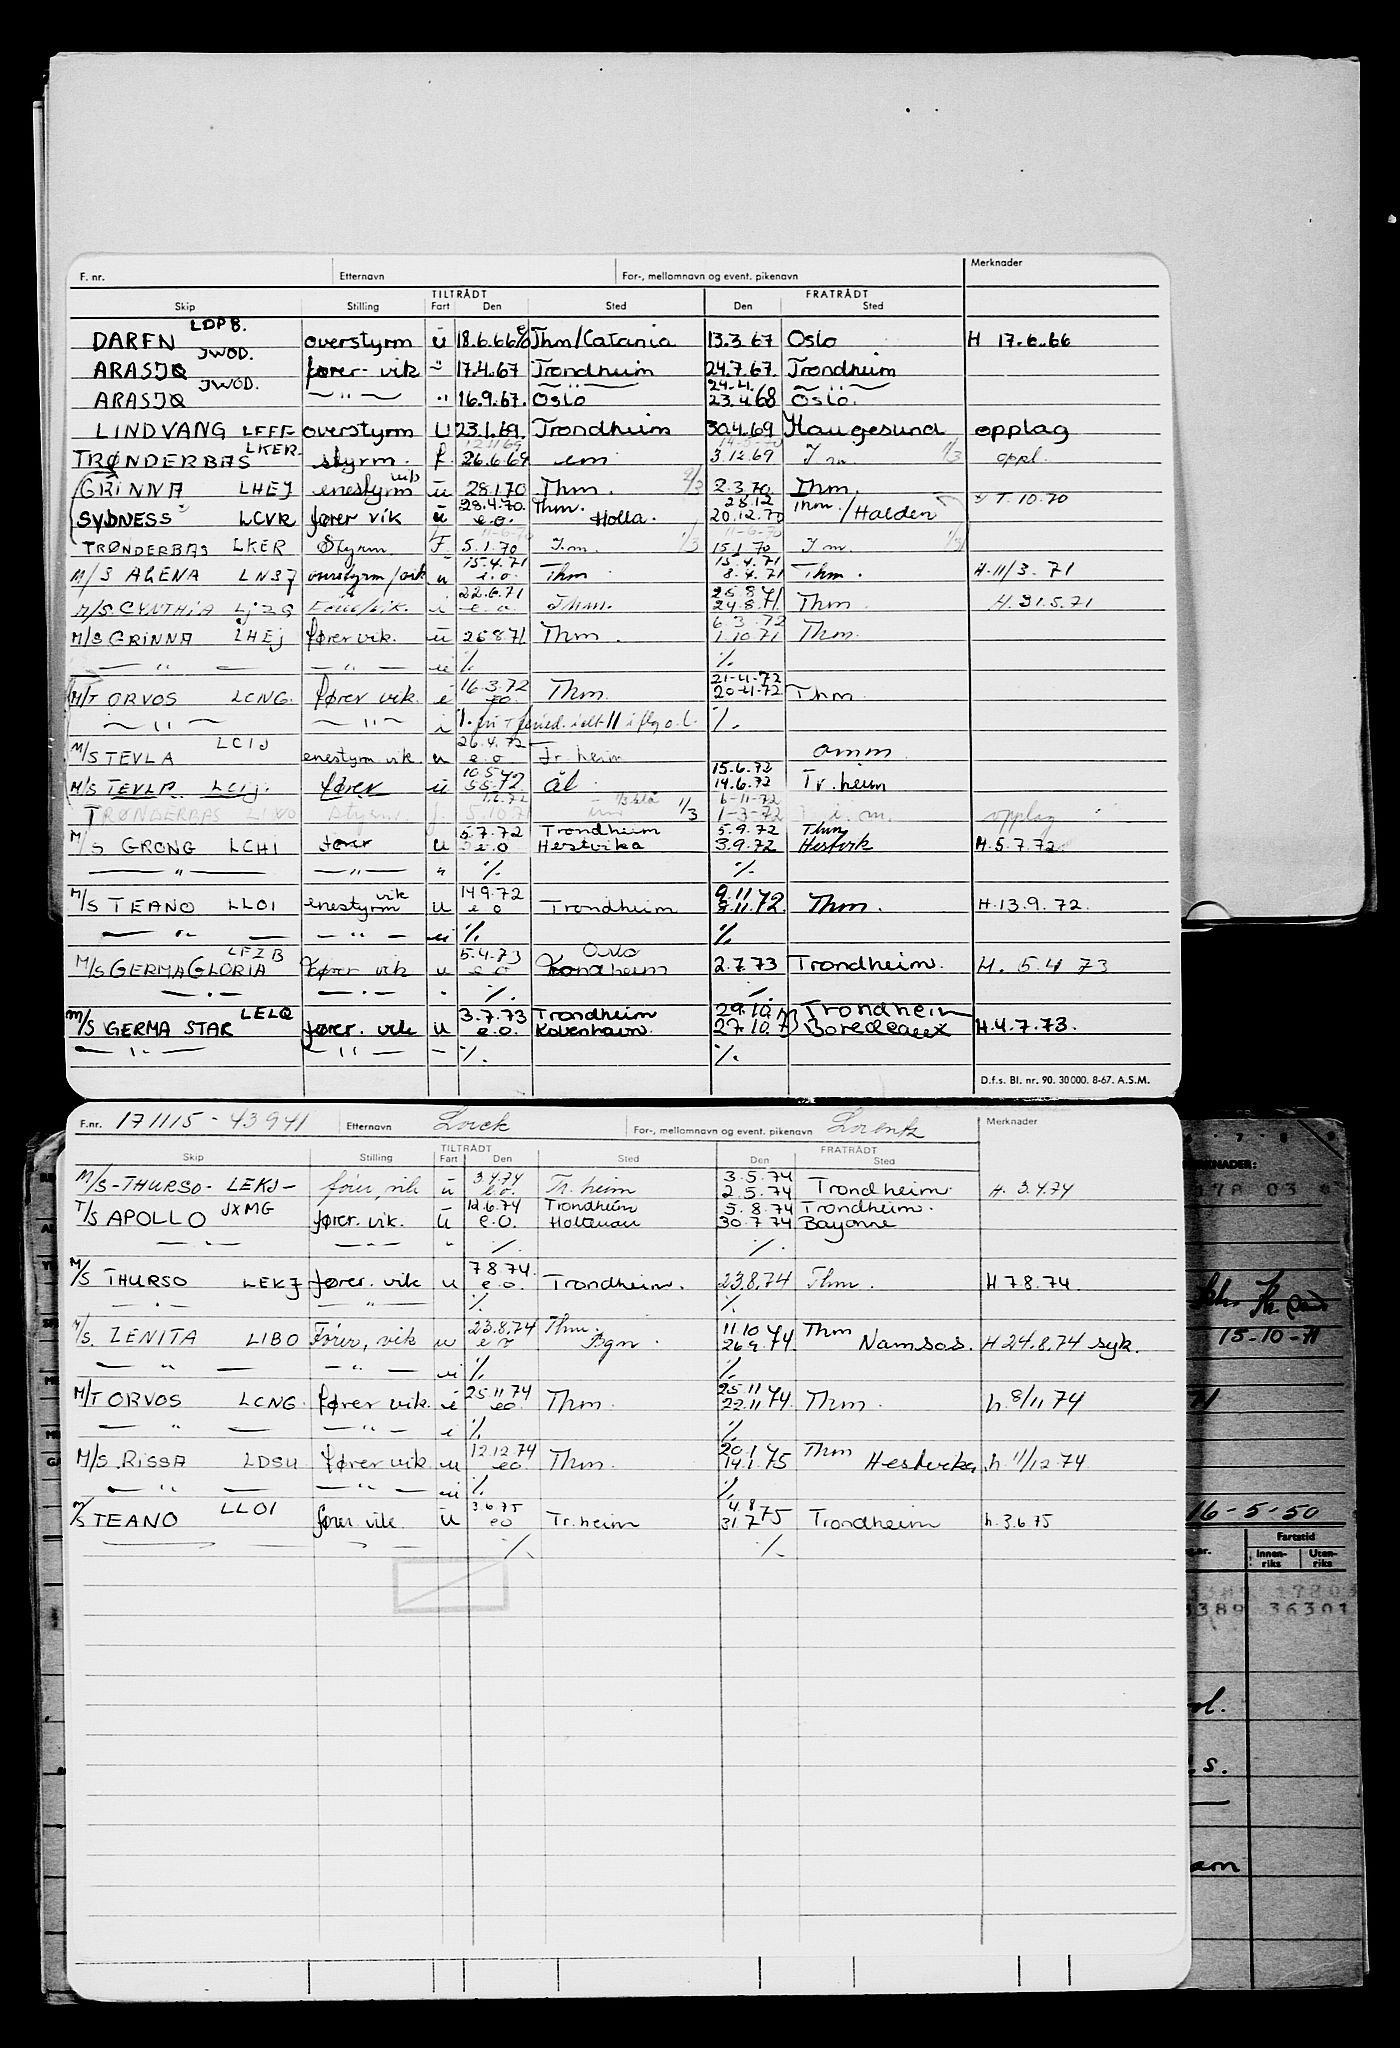 F. nr. Etternavn For-, mellomnavn og event. pikenavn Merknader
TILTRÅDT FRATRÅDT
Skip Stilling Fart Den Sted Den Sted
LDPB.
DAREN overstyrm u 18.6.66 Thm/Catania 13.3.67 Oslo H 17.6.66
JWOD.
ARASJØ fører - vik " 17.4.67 Trondheim 24.7.67. Trondheim
JWOD. 24.4.68
ARASJØ — " — " 16.9.67. Oslo 23.4.68 Oslo.
LINDVANG LFFF overstyrm U 23.1.69. Trondheim 30.4.69 Haugesund opplag
LKER
TRØNDERBAS styrm. f. 26.6.69 3.12.69 1/3 oppl.
vik
GRINNA LHEJ enestyrm u 28.1.70 Thm. 2.3.70 Thm.
28.4.70. Thm. 28.12 Thm. T. 10.70
SYDNESS LCVR fører vik u e.o. Holla. 20.12.70 /Halden
TRØNDERBAS LKER Styrm. F 5.1.70 I.m. 1/3 15.1.70 I m. 1/3
15.4.71 15.4.71
M/S ALENA overstyrm/vik u e.o. Thm 8.4.71 Thm. H.11/3.71
22.6.71 25.8.71
M/S CYNTHIA LJZG e.o. Thm. 24.8.71 Thm H.31.5.71
6.3.72
M/S GRINNA LHEJ fører vik. u 26.8.71 Thm. 1.10.71 Thm.
— " — — " — u ./. ./.
16.3.72 21-4-72
M/T ORVOS LCNG. fører vik. i eo. Thm. 20-4-72 Thm
— " — — " — i ./.
LCIJ 26.4.72
M/S TEVLA enestyrm vik u e.o Tr.heim omm
10.5.72 15.6.72
M/S TEVLA LCIJ. fører u 5.5.72 ål 14.6.72 Tr.heim
6-11-72
TRØNDERBAS styrm. f. 5.10.71 1/3 1-3-72 i. m. opplag
5.7.72 Trondheim 5.9.72 Thm
M/S GRONG LCHI fører u e.o Hestvika 3.9.72 Hestvik H.5.7.72
— " — — " — " ./. ./.
vik 14.9.72 9.11.72
M/S TEANO LLOI enestyrm u e o Trondheim 7.11.72. Thm. H.13.9.72.
— " — — " — u ./. ./.
LFZB 5.4.73 Oslo
M/S GERMA GLORIA fører vik u e o Trondheim 2.7.73 Trondheim. H. 5.4 73
— " — — " — " ./. ./.
LELQ 3.7.73 Trondheim 29.10.73 Trondheim
M/S GERMA STAR fører. vik u e.o. København. 27.10.73 Boredeaux H.4.7.73.
— " — — " — — ./. ./.
D.f.s. Bl. nr. 90. 30 000. 8-67. A.S.M.
F.nr. 171115 - 43941 Etternavn Lorck For-, mellomnavn og event. pikenavn Lorentz Merknader
TILTRÅDT FRATRÅDT
Skip Stilling Fart Den Sted Den Sted
3.4.74 3.5.74
M/S - THURSO - LEKJ - fører, vik u e.o. Tr.heim 2.5.74 Trondheim H. 3.4.74
JXMG 12.6.74 Trondheim 5.8.74 Trondheim.
T/S APOLLO fører. vik. u e.o. Holtenau 30.7.74 Bayonne
— " — — " — " ./. ./.
7.8.74.
M/S THURSO LEKJ fører. vik u e o Trondheim. 23.8.74 Thm. H 7.8.74.
— " — — " — ./. ./.
23.8.74 Thm. 11.10.74 Thm
M/S. ZENITA LIBO Fører, vik u e o Bgn. 26.9.74 Namsos. H 24.8.74 syk.
— " — — " — u ./. ./.
25.11.74 25.11.74
M/T ORVOS LCNG. fører vik. i eo Thm. 22.11.74. Thm. h. 8/11 74
— " — — " — i ./. ./.
12.12.74 20.1.75 Thm
M/S. RISSA LDSU fører vik. u eo Thm. 14.1.75 Hestvika h 11/12.74
— " — — " — u ./. ./.
LLOI 3.6.75 4.8.75
M/S TEANO fører vik u eo Tr.heim 31.7.75 Trondheim h. 3.6.75
./. ./.
6 7 8 9
KNADER:
15-10-71
16-5-50
Fartstid
Innen-riks Uten-riks
389 36301